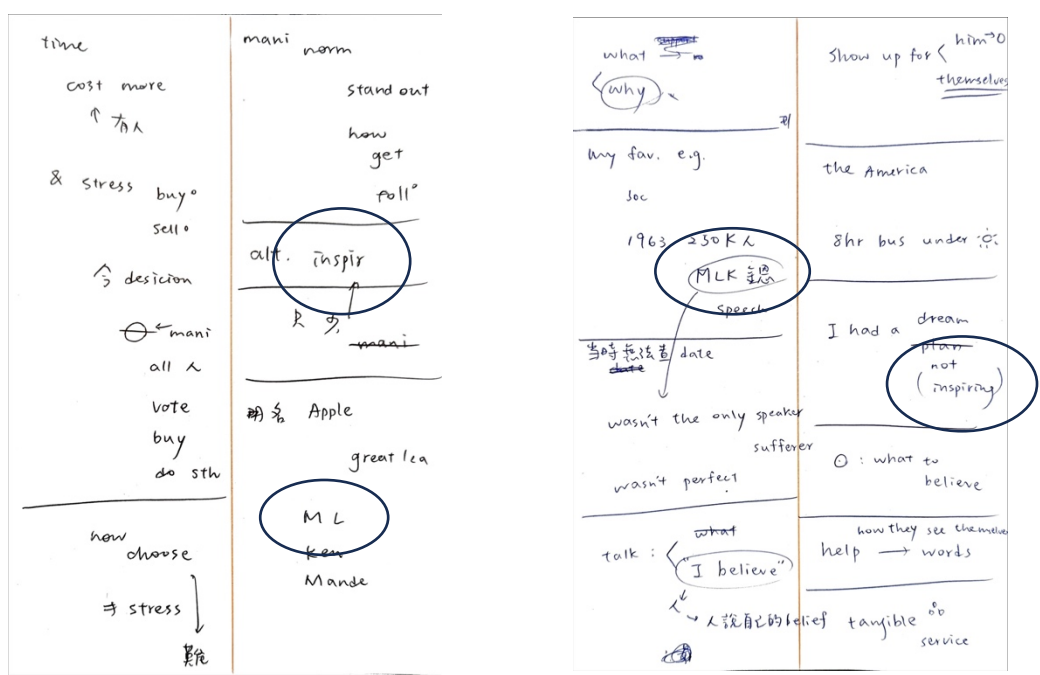 time
cost more
↑ 有人
& stress
buy
sell
今 desicion
← mani
all 人
vote
buy
do sth
how
choose
⇒ stress
難
mani
norm
stand out
how
get
poll
alt. inspir
mani
明名 Apple
great lea
ML
Ken
Mande
what
why
my fav. e.g.
soc
1963 250K人
MLK
speech
当時無法查 date
date
wasn't the only speaker
sufferer
wasn't perfect
what
talk :
"I believe"
人
→ 人說自己的belief
show up for
him→0
themselves
the America
8hr bus under
I had a dream
plan
not
(inspiring)
O : what to
believe
how they see themselves
help → words
tangible
service